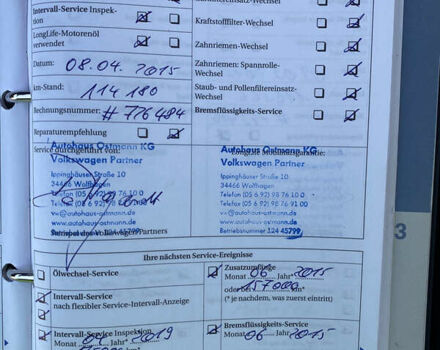 Intervall-Service Inspek-
tion
LongLife-Motorenöl
verwendet
Kraftstofffilter-Wechsel
Zahnriemen-
Wechsel
Zahnriemen: Spannrolle-
Wechsel
Staub- und Pollenfiltereinsatz-
Wechsel
Bremsflüssigkeits-Service
Datum: 08.04.2015
km-Stand: 114 180
Rechnungsnummer: # 776484
Reparaturempfehlung
Service durchgeführt von:
Autohaus Ostmann KG
Volkswagen Partner
Ippinghäuser Straße 10
34466 Wolfhagen
Telefon (05 6 92) 98 76 10 0
vw@autohaus-ostmann.de
www.autohaus-ostmann.de
Stempel des Volkswagen Partners
Autohaus Ostmann KG
Volkswagen Partner
Ippinghäuser Straße 10
34466 Wolfhagen
Telefon (05 6 92) 98 76 10 0
Telefax (05 6 92) 98 76 91 01
vw@autohaus-ostmann.de
www.autohaus-ostmann.de
Betriebsnummer 124 45799
3
Ihre nächsten Service-Ereignisse
Ölwechsel-Service
Intervall-Service
nach flexibler Service-Intervall-Anzeige
Intervall-Service Inspektion
2019
Monat 06 Jahr* 2015
oder bei 157000 km*
(* je nachdem, was zuerst eintritt)
Bremsflüssigkeits-Service
Monat 06 Jahr 2015